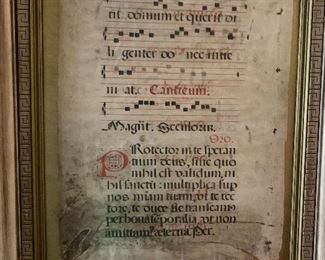 rit domum et querit di
li genter do nec inue
ni at. Canticum.
Magnt. Seculorum.
Oro.
Protector in te speran
tium deus, sine quo
nihil est validum, ni
hil sanctū: multiplica sup
nos miam tuam, vt te rec
tore, te duce sic transeam
per bona temporalia, vt non
amittam eterna. Per.